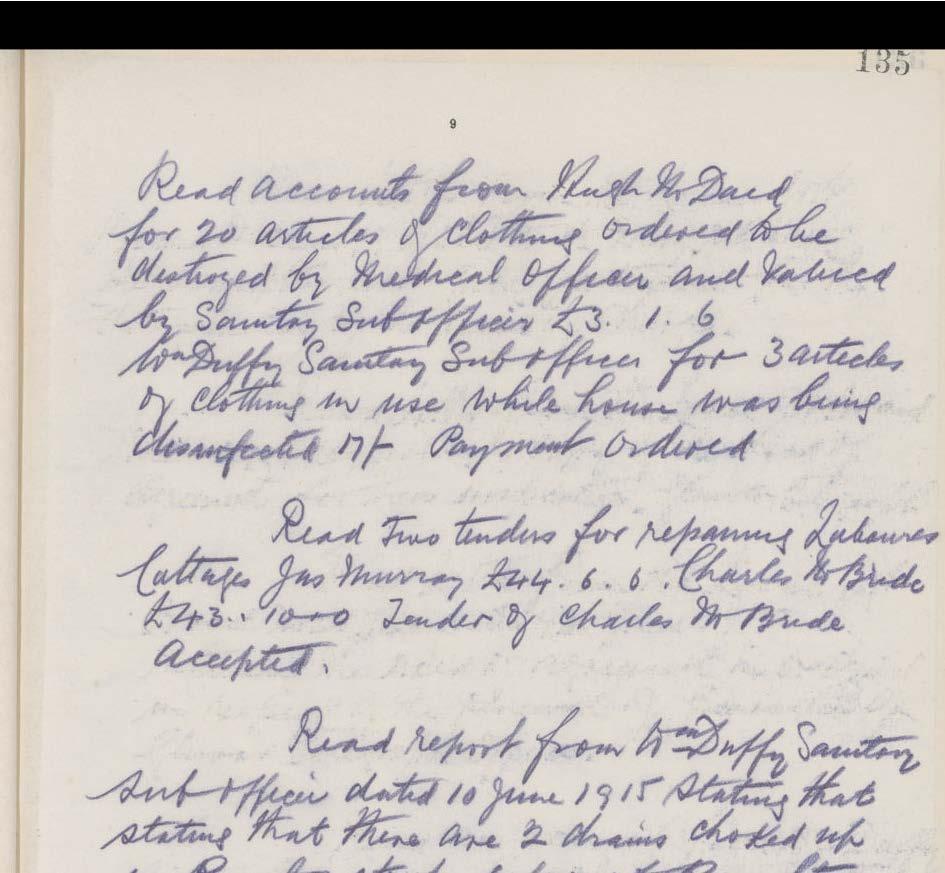 135
9
Read accounts from Hugh McDaid
for 20 articles of clothing ordered to be
destroyed by Medical Officer and Valued
by Sanitay Sub officer £3. 1. 6
Wm Duffy Sanitay Sub officer for 3 articles
of clothing in use while house was being
disinfected 17/- Payment ordered
Read Two tenders for repairing Laboures
Cottages Jas Murray £44. 6. 6. Charles McBride
£43.. 10-0 Tender of Charles McBride
Accepted.
Read report from Wm Duffy Sanitary
Sub officer dated 10 June 1915 stating that
stating that there are 2 drains choked up